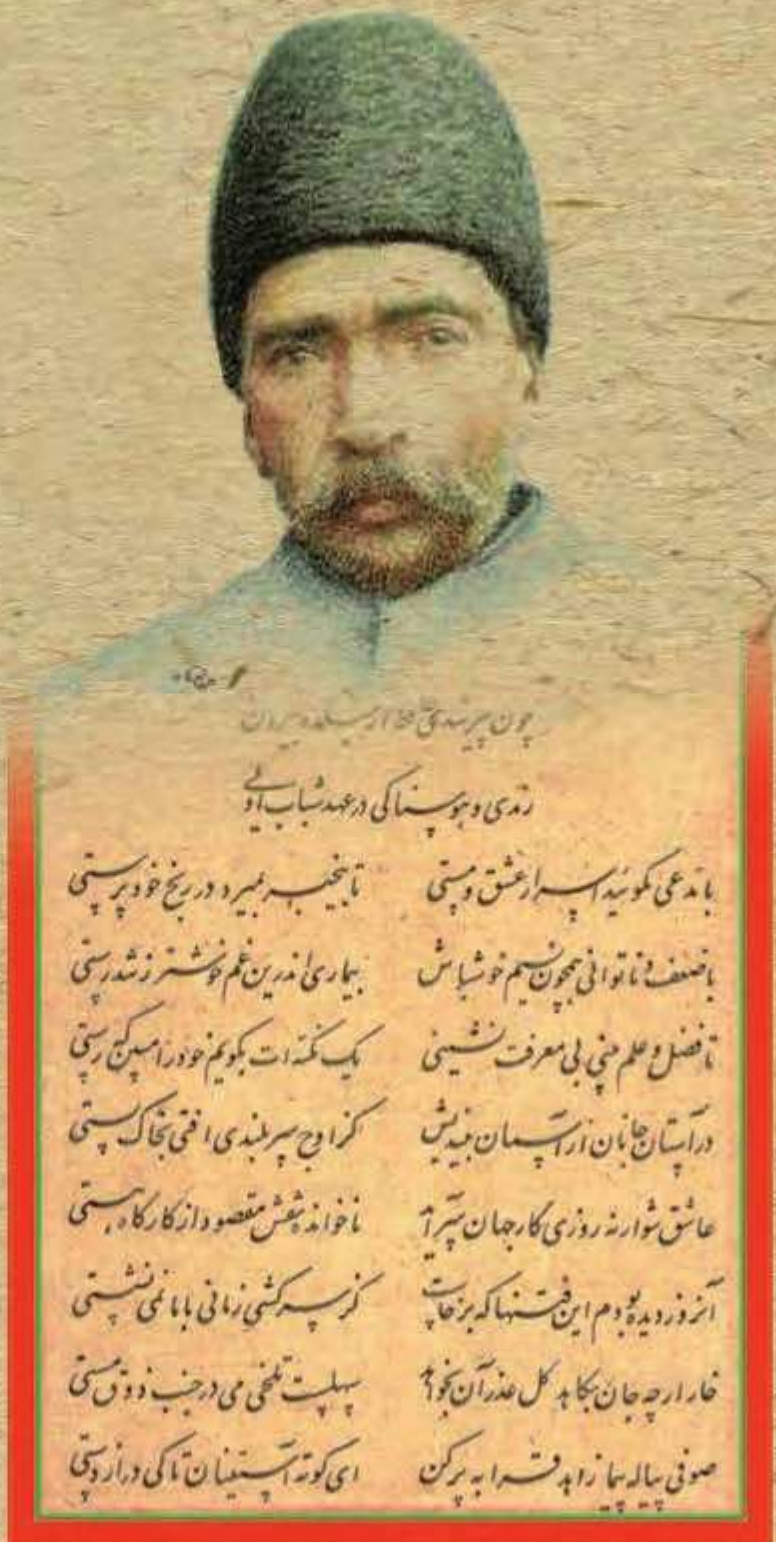 چون پیر شدی حافظ از میکده بیرون
رندی و هوسناکی در عهد شباب اولی
با مدعی مگوئید اسرار عشق و مستی تا بیخبر بمیرد در رنج خودپرستی
با ضعف و ناتوانی همچون نسیم خوشباش بیماری اندرین غم خوشتر ز تندرستی
تا فضل و علم بینی بی معرفت نشینی یک نکته ات بگویم خود را مبین که رستی
در آستان جانان از آسمان میندیش کز اوج سربلندی افتی بخاک پستی
عاشق شو ارنه روزی کار جهان سرآید ناخوانده نقش مقصود از کارگاه هستی
آنروز دیده بودم این فتنها که برخاست کز سرکشی زمانی با ما نمی نشستی
خار ارچه جان بکاهد گل عذر آن بخواهد سهلست تلخی می در جنب ذوق مستی
صوفی پیاله پیما زاهد قرابه پرکن ای کوته آستینان تا کی درازدستی